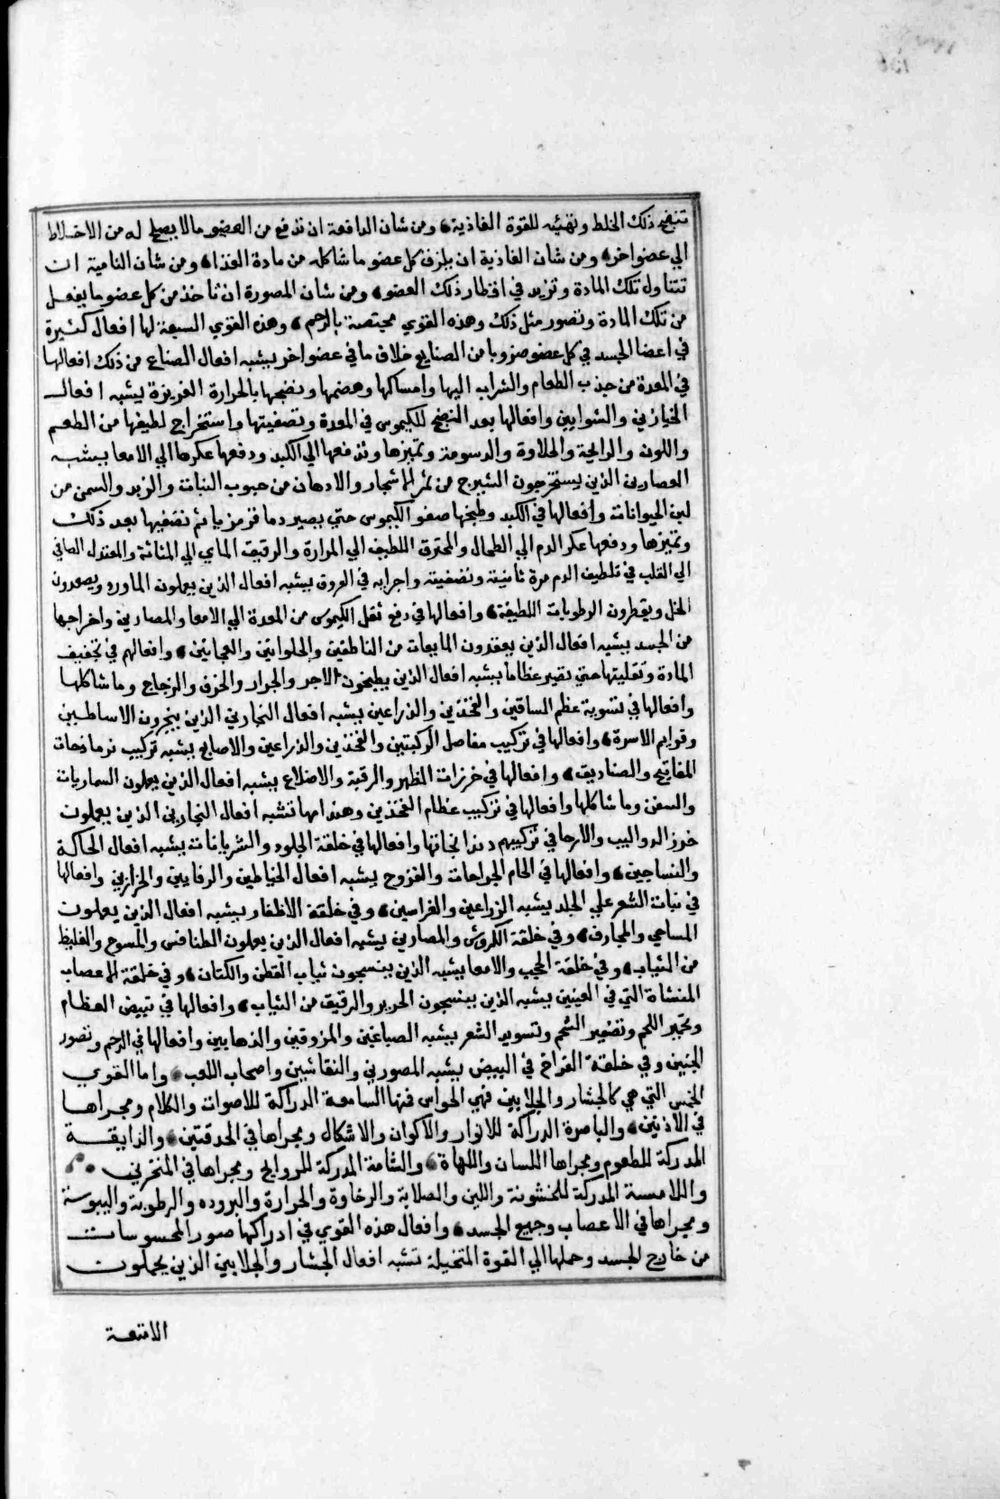 تنضج ذلك الخلط وتهيئه للقوة الغاذية، ومن شان الدافعة ان تدفع من العضو ما لا يصلح له من الاخلاط
الي عضو اخر، ومن شان الغاذية ان يلزق كل عضو ما شاكله من مادة الغذا، ومن شان النامية ان
تتناول تلك المادة وتزيد في اقطار ذلك العضو، ومن شان المصورة ان تاخذ من كل عضو ما يفعل
من تلك المادة وتصور مثل ذلك وهذه القوي مختصة بالرحم، وهذه القوي السبعة لها افعال كثيرة
في اعضا الجسد في كل عضو ضروبا من الصنايع خلاف ما في عضو اخر يشبه افعال الصناع من ذلك افعالها
في المعدة من جذب الطعام والشراب اليها وامساكها وهضمها ونضجها بالحرارة الغريزة يشبه افعال
الخبازين والشوايين وافعالها بعد النضج للكيموس في المعدة وتصفيتها واستخراج لطيفها من الطعم
واللون والرايحة والحلاوة والدسومة وتميزها وتدفعها الي الكبد ودفعها عكرها الي الامعا يشبه
العصارين الذين يستخرجون الشيرج من ثمر الاشجار والادهان من حبوب النبات والزبد والسمن من
لبن الحيوانات وافعالها في الكبد وطبخها صفو الكيموس حتي يصير دما قرمزيا ثم تصفيها بعد ذلك
وتميزها ودفعها عكر الدم الي الطحال والمحترق اللطيف الي المرارة والرقيق الماي الي المثانة والمعتدل الصافي
الي القلب في تلطيف الدم مرة ثانية وتصفيته واجرايه في العروق يشبه افعال الذين يعملون الماورد ويصعدون
الخل ويقطرون الرطوبات اللطيفة، وافعالها في دفع ثقل الكيموس من المعدة الي الامعا والمصارين واخراجها
من الجسد يشبه افعال الذين يعقدون المايعات من الناطفين والحلوانين والعجانين، وافعالهم في تجفيف
المادة وتقليتها حتي تصير عظاما يشبه افعال الذين يطبخون الاجر والجرار والخزف والزجاج وما شاكلها
وافعالها في تسوية عظم الساقين والفخذين والذراعين يشبه افعال النجارين الذين ينجرون الاساطين
وقوايم الاسرة، وافعالها في تركيب مفاصل الركبتين والفخذين والذراعين والاصابع يشبه تركيب نرماذجات
المفاتيح والصناديق، وافعالها في خرزات الظهر والرقبة والاضلاع يشبه افعال الذين يعملون السماريات
والسفن وما شاكلها وافعالها في تركيب عظام الفخذين وهندامها تشبه افعال النجارين الذين يعملون
خرز الدواليب والارحا في تركيبهم دندانجاتها وافعالها في خلقة الجلود والشريانات يشبه افعال الحاكة
والنساجين، وافعالها في الحام الجراحات والقروح يشبه افعال الخياطين والرفايين والخرازين وافعالها
في نبات الشعر علي الجلد يشبه الزراعين والغراسين، وفي خلقة الاظفار يشبه افعال الذين يعملون
المساحي والمجارف، وفي خلقة الكروش والمصارين يشبه افعال الذين يعملون الطنافس والمسوح والغليظ
من الثياب، وفي خلقة الحجب والامعا يشبه الذين ينسجون ثياب القطن والكتان، وفي خلقة الاعصاب
المنشاة التي في العينين يشبه الذين ينسجون الحرير والرقيق من الثياب، وافعالها في تبيض العظام
وتحمير اللحم وتصفير الشحم وتسويد الشعر يشبه الصباغين والمزوقين والذهابين وافعالها في الرحم وتصور
الجنين وفي خلقة الفراخ في البيض يشبه المصورين والنقاشين واصحاب اللعب، واما القوي
الخمس التي هي كالجشار والجلابين فهي الحواس فمنها السامعة الدراكة للاصوات والكلام ومجراها
في الاذنين، والباصرة الدراكة للانوار والاكوان والاشكال ومجراها في الحدقتين، والذايقة
المدركة للطعوم ومجراها اللسان واللهاة، والشامة المدركة للروايح ومجراها في المنخرين
واللامسة المدركة للخشونة واللين والصلابة والرخاوة والحرارة والبروده والرطوبة واليبوسة
ومجراها في الاعصاب وجميع الجسد، وافعال هذه القوي في ادراكها صور المحسوسات
من خارج الجسد وحملها الي القوة المتخيلة تشبه افعال الجشار والجلابين الذين يحملون
الامتعة